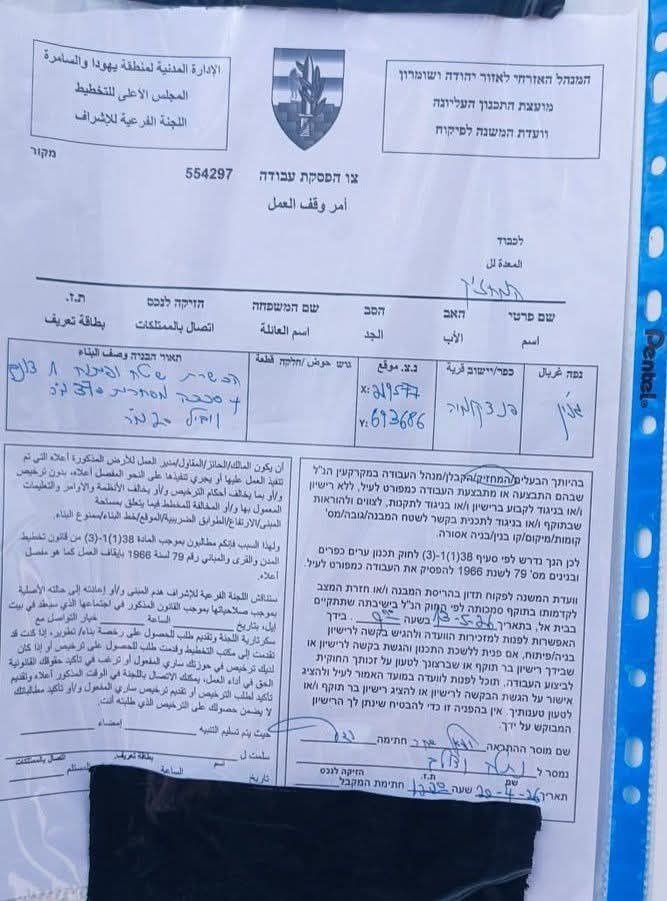 המנהל האזרחי לאזור יהודה ושומרון
מועצת התכנון העליונה
וועדת המשנה לפיקוח
الإدارة المدنية لمنطقة يهودا والسامرة
المجلس الاعلى للتخطيط
اللجنة الفرعية للإشراف
מקור
צו הפסקת עבודה 554297
أمر وقف العمل
לכבוד
المعدة لل
המחזיק
שם פרטי האב הסב שם המשפחה הזיקה לנכס ת.ז.
اسم الأب الجد اسم العائلة اتصال بالممتلكات بطاقة تعريف
נפה غربال כפר/יישוב قرية נ.צ. מוקע موقع גוש حوض/חלקה قطعة תאור הבניה وصف البناء
X: 219577
Y: 693686
הכשרת שטח
בהיותך הבעלים/המחזיק/הקבלן/מנהל העבודה במקרקעין הנ"ל
שבהם התבצעה או מתבצעת העבודה כמפורט לעיל, ללא רישיון
ו/או בניגוד לקבוע ברישיון ו/או בניגוד לתקנות, לצווים ולהוראות
שבתוקף ו/או בניגוד לתכנית בקשר לשטח המבנה/גובה/מס'
קומות/מיקום/קו בנין/בניה אסורה.
לכן הנך נדרש לפי סעיף 38(1)-(3) לחוק תכנון ערים כפרים
ובנינים מס' 79 לשנת 1966 להפסיק את העבודה כמפורט לעיל.
וועדת המשנה לפיקוח תדון בהריסת המבנה ו/או חזרת המצב
לקדמותו בתוקף סמכותה לפי החוק הנ"ל בישיבתה שתתקיים
בבית אל, בתאריך 13-5-26 בשעה בידך
האפשרות לפנות למזכירות הוועדה ולהגיש בקשה לרישיון
בניה/פיתוח, אם פנית ללשכת התכנון והגשת בקשה לרישיון או
שבידך רישיון בר תוקף או שברצונך לטעון על זכותך החוקית
לביצוע העבודה. תוכל לפנות לוועדה במועד האמור לעיל ולהציג
אישור על הגשת הבקשה לרישיון או להציג רישיון בר תוקף ו/או
לטעון טענותיך. אין בהפניה זו כדי להבטיח שינתן לך הרישיון
המבוקש על ידך.
שם מוסר ההתראה חתימה
נמסר ל
שם ת.ז. הזיקה לנכס
תאריך 22-4-26 שעה חתימת המקבל
أن يكون المالك/الحائز/المقاول/مدير العمل للأرض المذكورة أعلاه التي تم
تنفيذ العمل عليها أو يجري تنفيذها على النحو المفصل أعلاه، بدون ترخيص
و/أو بما يخالف أحكام الترخيص و/أو يخالف الأنظمة والأوامر والتعليمات
المعمول بها و/أو المخالفة للمخطط فيما يتعلق بمساحة
المبنى/الارتفاع/الطوابق الضريبية/الموقع/خط البناء/ممنوع البناء.
ولهذا السبب فإنكم مطالبون بموجب المادة 38(1)-(3) من قانون تخطيط
المدن والقرى والمباني رقم 79 لسنة 1966 بإيقاف العمل كما هو مفصل
أعلاه.
ستناقش اللجنة الفرعية للإشراف هدم المبنى و/أو إعادته إلى حالته الأصلية
بموجب صلاحياتها بموجب القانون المذكور في اجتماعها الذي سيعقد في بيت
ايل، بتاريخ الساعة خيار التواصل مع
سكرتارية اللجنة وتقديم طلب للحصول على رخصة بناء/ تطوير، إذا كنت قد
تقدمت إلى مكتب التخطيط وقدمت طلب للحصول على ترخيص أو إذا كان
لديك ترخيص في حوزتك ساري المفعول أو ترغب في تأكيد حقوقك القانونية
الحق في أداء العمل، يمكنك الاتصال باللجنة في الوقت المذكور أعلاه وتقديم
تأكيد لطلب الترخيص أو تقديم ترخيص ساري المفعول و/أو تأكيد مطالباتك
لا يضمن حصولك على الترخيص الذي طلبته أنت.
حيث يتم تسليم التنبيه إمضاء
سلمت ل
اسم بطاقة تعريف. اتصال بالممتلكات
تاريخ الساعة المستلم
Pentel